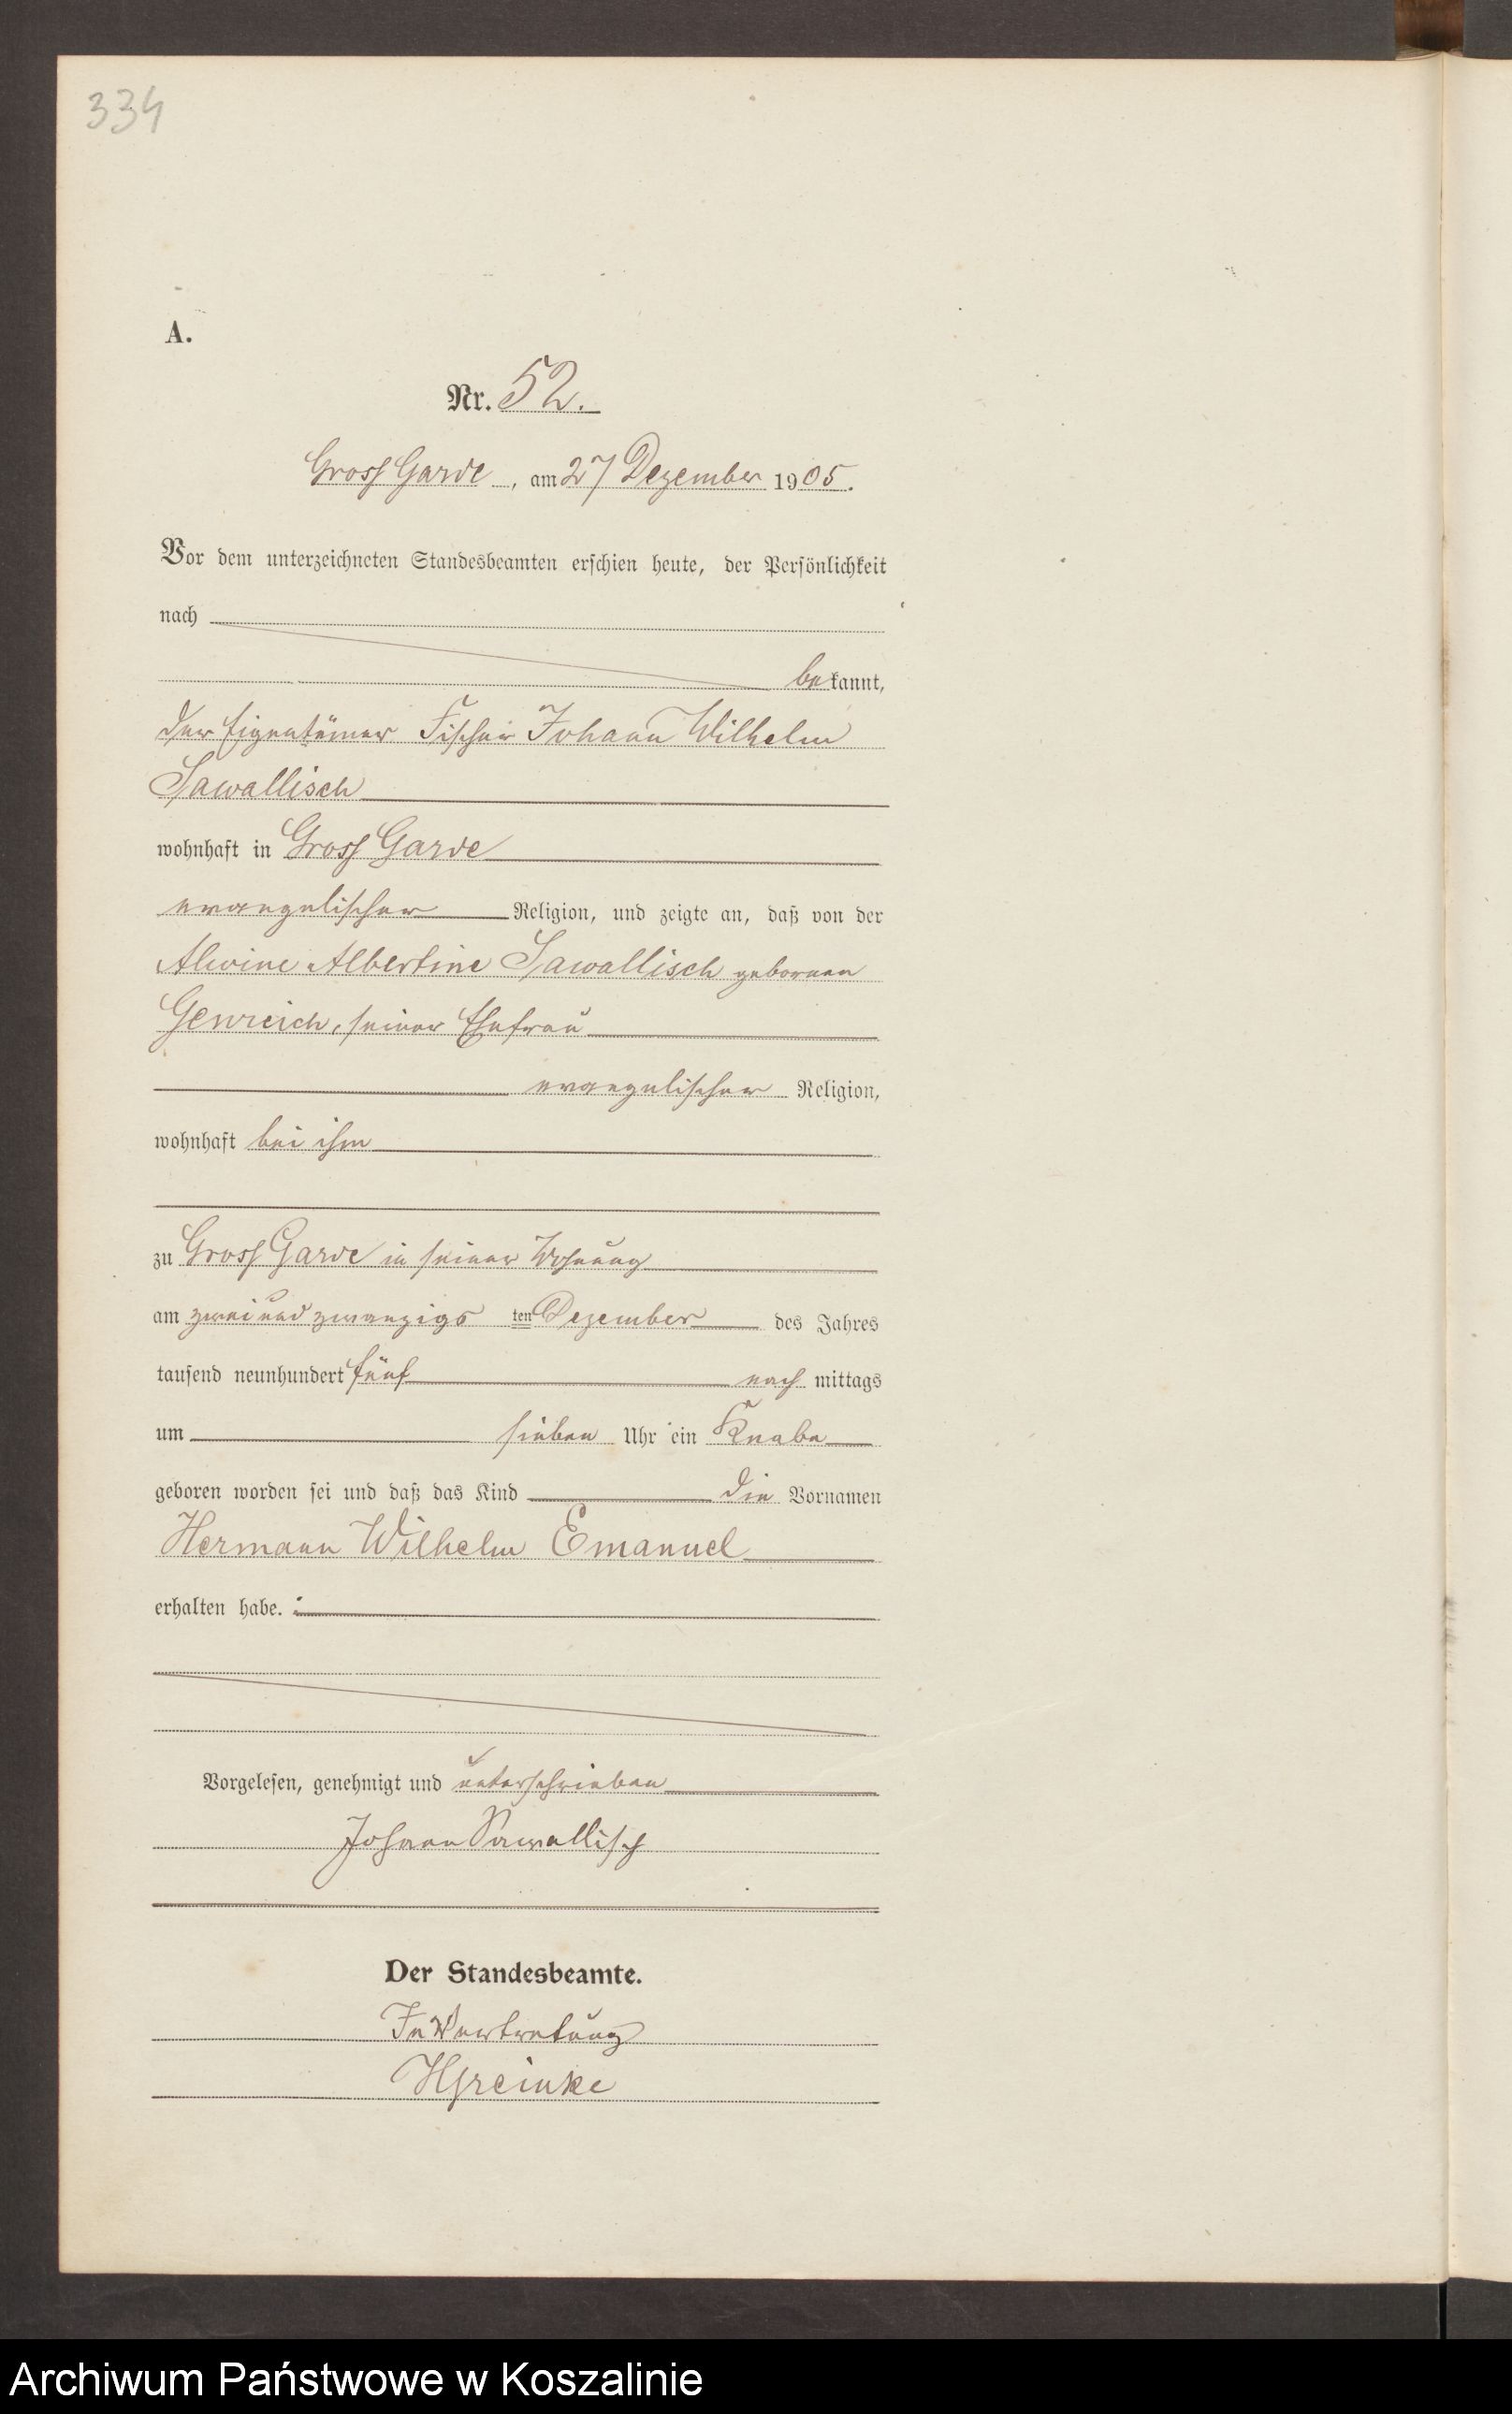 334
A.
Nr. 52.
Gross Garde, am 27 Dezember 1905.
Vor dem unterzeichneten Standesbeamten erschien heute, der Persönlichkeit
nach
bekannt,
der Eigentümer Fischer Johann Wilhelm
Sawallisch
wohnhaft in Gross Garde
evangelischer Religion, und zeigte an, daß von der
Alwine Albertine Sawallisch geborenen
Genreich, seiner Ehefrau
evangelischer Religion,
wohnhaft bei ihm
zu Gross Garde in seiner Wohnung
am zwei und zwanzigsten Dezember des Jahres
tausend neunhundert fünf nach mittags
um sieben Uhr ein Knabe
geboren worden sei und daß das Kind die Vornamen
Hermann Wilhelm Emanuel
erhalten habe.
Vorgelesen, genehmigt und unterschrieben
Johann Sawallisch
Der Standesbeamte.
In Vertretung
Archiwum Państwowe w Koszalinie